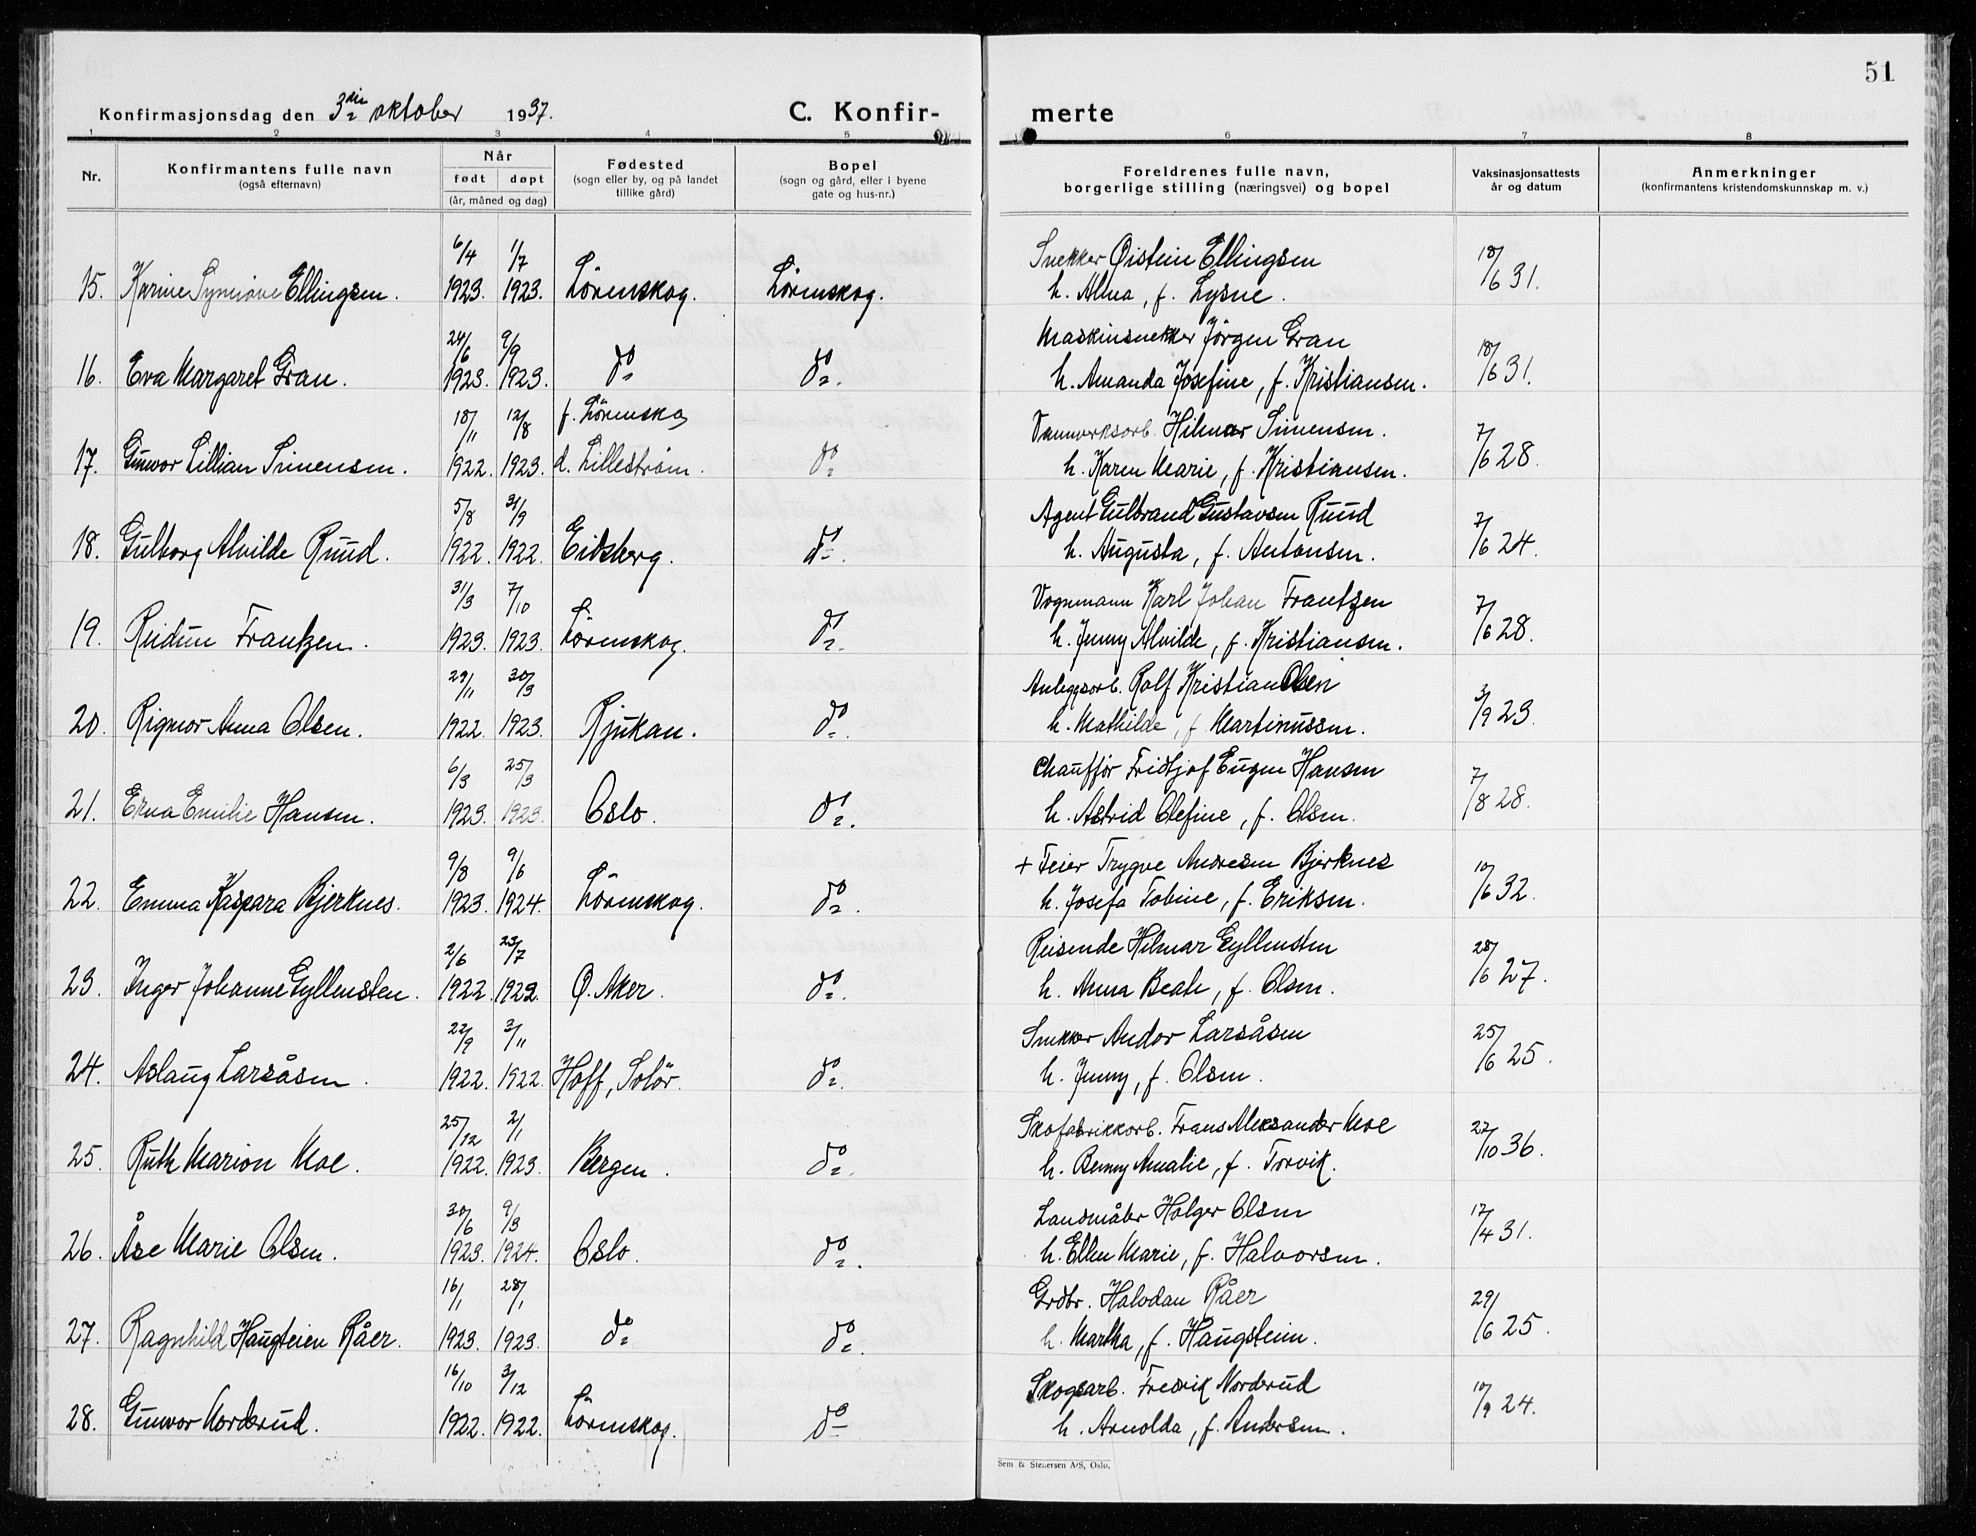 51
Konfirmasjonsdag den 3die oktober 1937. C. Konfir- merte
1 2 3 4 5 6 7 8
Nr. Konfirmantens fulle navn (også efternavn) Når født døpt (år, måned og dag) Fødested (sogn eller by, og på landet tillike gård) Bopel (sogn og gård, eller i byene gate og hus-nr.) Foreldrenes fulle navn, borgerlige stilling (næringsvei) og bopel Vaksinasjonsattests år og datum Anmerkninger (konfirmantens kristendomskunnskap m. v.)
6/4 1/7 Snekker Øistein Ellingsen 18/6 31.
15. Karine Synnøve Ellingsen. 1923. 1923. Lörenskog. Lörenskog. h. Alma, f. Lysne.
24/6 9/9 Maskinsnekker Jörgen Gran 18/6 31.
16. Eva Margaret Gran. 1923. 1923. do do. h. Amanda Josefine, f. Kristiansen.
18/11 12/8 f. Lörenskog Vannverksarb. Hilmar Simensen. 7/6 28.
17. Gunvor Lillian Simensen. 1922. 1923. d. Lilleström. do h. Karen Marie, f. Kristiansen.
5/8 31/9 Agent Gulbrand Gustavsen Ruud 7/6 24.
18. Gulborg Alvilde Ruud. 1922. 1922. Eidsberg. do. h. Augusta, f. Antonsen.
31/3 7/10 Vognmann Karl Johan Frantzen 7/6 28.
19. Reidun Frantzen. 1923. 1923. Lörenskog. do. h. Jenny Alvilde, f. Kristiansen.
29/11 30/3 Anleggsarb. Rolf Kristian Olsen 3/9 23.
20. Rigmor Anna Olsen. 1922. 1923. Rjukan. do. h. Mathilde, f Martinussen.
6/3 25/3 Chauffør Fridtjof Eugen Hansen 7/8 28.
21. Erna Emilie Hansen. 1923. 1923. Oslo. do. h. Astrid Olefine, f. Olsen.
9/8 9/6 + Feier Trygve Andresen Bjerknes 10/6 32.
22. Emma Kaspara Bjerknes. 1923. 1924. Lörenskog. do. h. Josefa Tobine, f. Eriksen.
2/6 23/7 Reisende Hilmar Gyllensten 28/6 27.
23. Inger Johanne Gyllensten. 1922. 1922. Ø. Aker. do. h. Anna Beate, f. Olsen.
22/9 3/11 Snekker Andor Larsåsen 25/6 25.
24. Aslaug Larsåsen. 1922. 1922. Hoff, Solör. do. h. Jenny, f. Olsen.
25/12 2/1 Skofabrikkarb. Frans Aleksander Moe 27/10 36.
25. Ruth Marion Moe. 1922. 1923. Bergen. do. h. Benny Amalie, f. Torvik.
30/6 9/3 Landmåler Holger Olsen 17/4 31.
26. Åse Marie Olsen. 1923. 1924. Oslo. do. h. Ellen Marie, f. Halvorsen.
16/1 28/1 Grdbr. Halvdan Råer 29/6 25.
27. Ragnhild Haugteien Råer. 1923. 1923. do do. h. Martha, f. Haugsteien.
16/10 3/12 Skogsarb. Fredrik Norderud 10/9 24.
28. Gunvor Norderud. 1922. 1922. Lörenskog. do h. Arnolda, f. Andersen.
Sem & Stenersen A/S, Oslo.